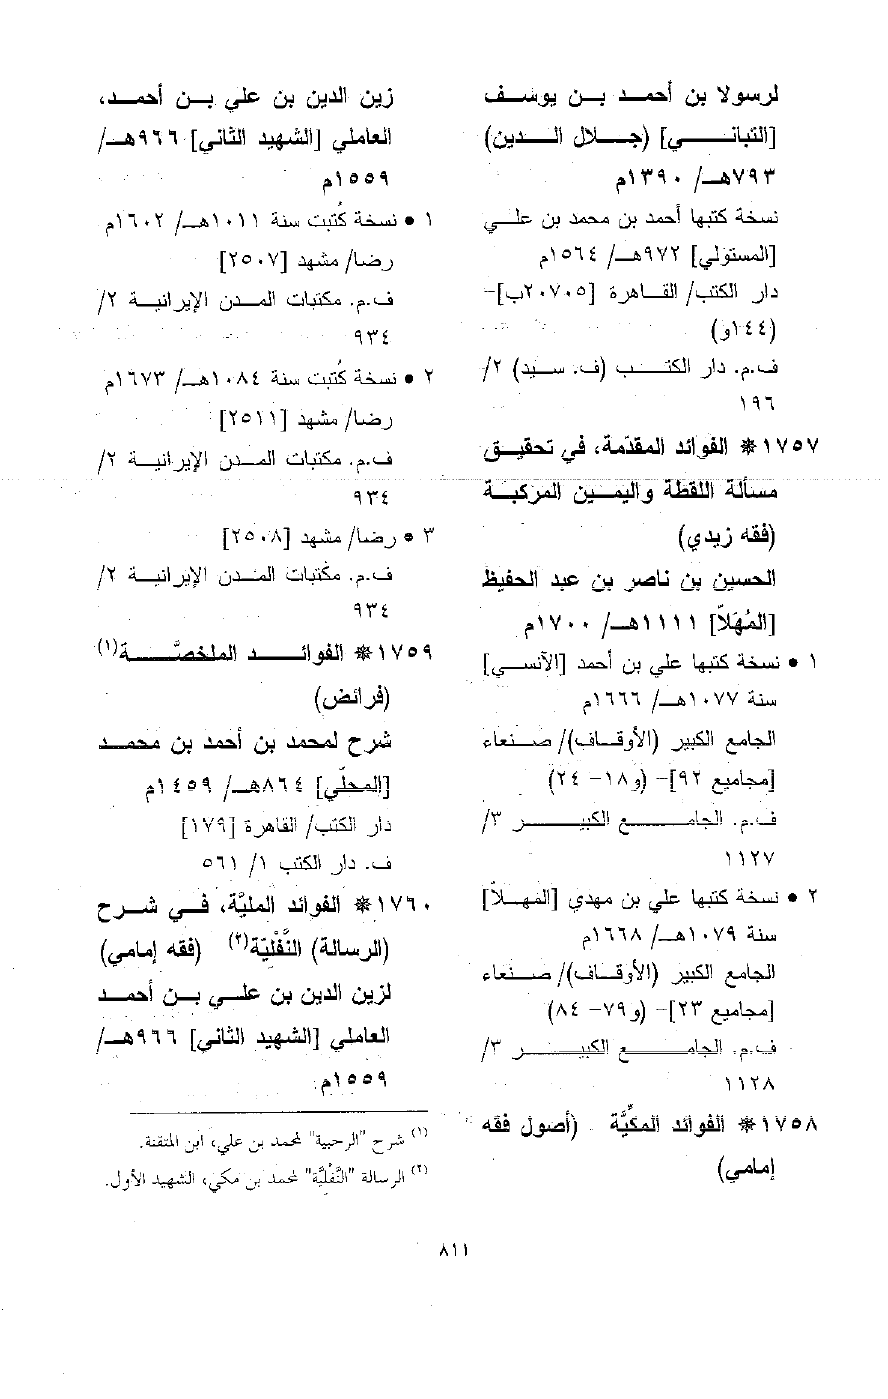 لرسولا بن أحمد بن يوسف
[التباني] (جلال الدين)
٧٩٣هـ/ ١٣٩٠م
نسخة كتبها أحمد بن محمد بن علي
[المستولي] ٩٧٢هـ/ ١٥٦٤م
دار الكتب/ القاهرة [٢٠٧٠٥ب]-
(١٤٤و)
ف.م. دار الكتب (ف. سيد) ٢/
١٩٦
١٧٥٧* الفوائد المقدّمة، في تحقيق
مسألة اللقطة واليمين المركبة
(فقه زيدي)
الحسين بن ناصر بن عبد الحفيظ
[المُهَلاّ] ١١١١هـ/ ١٧٠٠م
١ • نسخة كتبها علي بن أحمد [الآنسي]
سنة ١٠٧٧هـ/ ١٦٦٦م
الجامع الكبير (الأوقاف)/ صنعاء
[مجاميع ٩٢]- (و١٨- ٢٤)
ف.م. الجامع الكبير ٣/
١١٢٧
٢ • نسخة كتبها علي بن مهدي [المهلاّ]
سنة ١٠٧٩هـ/ ١٦٦٨م
الجامع الكبير (الأوقاف)/ صنعاء
[مجاميع ٢٣]- (و٧٩- ٨٤)
ف.م. الجامع الكبير ٣/
١١٢٨
١٧٥٨* الفوائد المكِّيَّة (أصول فقه
إمامي)
زين الدين بن علي بن أحمد،
العاملي [الشهيد الثاني] ٩٦٦هـ/
١٥٥٩م
١ • نسخة كُتبت سنة ١٠١١هـ/ ١٦٠٢م
رضا/ مشهد [٢٥٠٧]
ف.م. مكتبات المدن الإيرانية ٢/
٩٣٤
٢ • نسخة كُتبت سنة ١٠٨٤هـ/ ١٦٧٣م
رضا/ مشهد [٢٥١١]
ف.م. مكتبات المدن الإيرانية ٢/
٩٣٤
٣ • رضا/ مشهد [٢٥٠٨]
ف.م. مكتبات المدن الإيرانية ٢/
٩٣٤
١٧٥٩* الفوائد الملخصَّة(١)
(فرائض)
شرح لمحمد بن أحمد بن محمد
[المحلّي] ٨٦٤هـ/ ١٤٥٩م
دار الكتب/ القاهرة [١٧٩]
ف. دار الكتب ١/ ٥٦١
١٧٦٠* الفوائد المليَّة، في شرح
(الرسالة) النَّفْليّة(٢) (فقه إمامي)
لزين الدين بن علي بن أحمد
العاملي [الشهيد الثاني] ٩٦٦هـ/
١٥٥٩م
(١) شرح "الرحبية" لمحمد بن علي، ابن المتقنة.
(٢) الرسالة "النَّفْليَّة" لمحمد بن مكي، الشهيد الأول.
٨١١